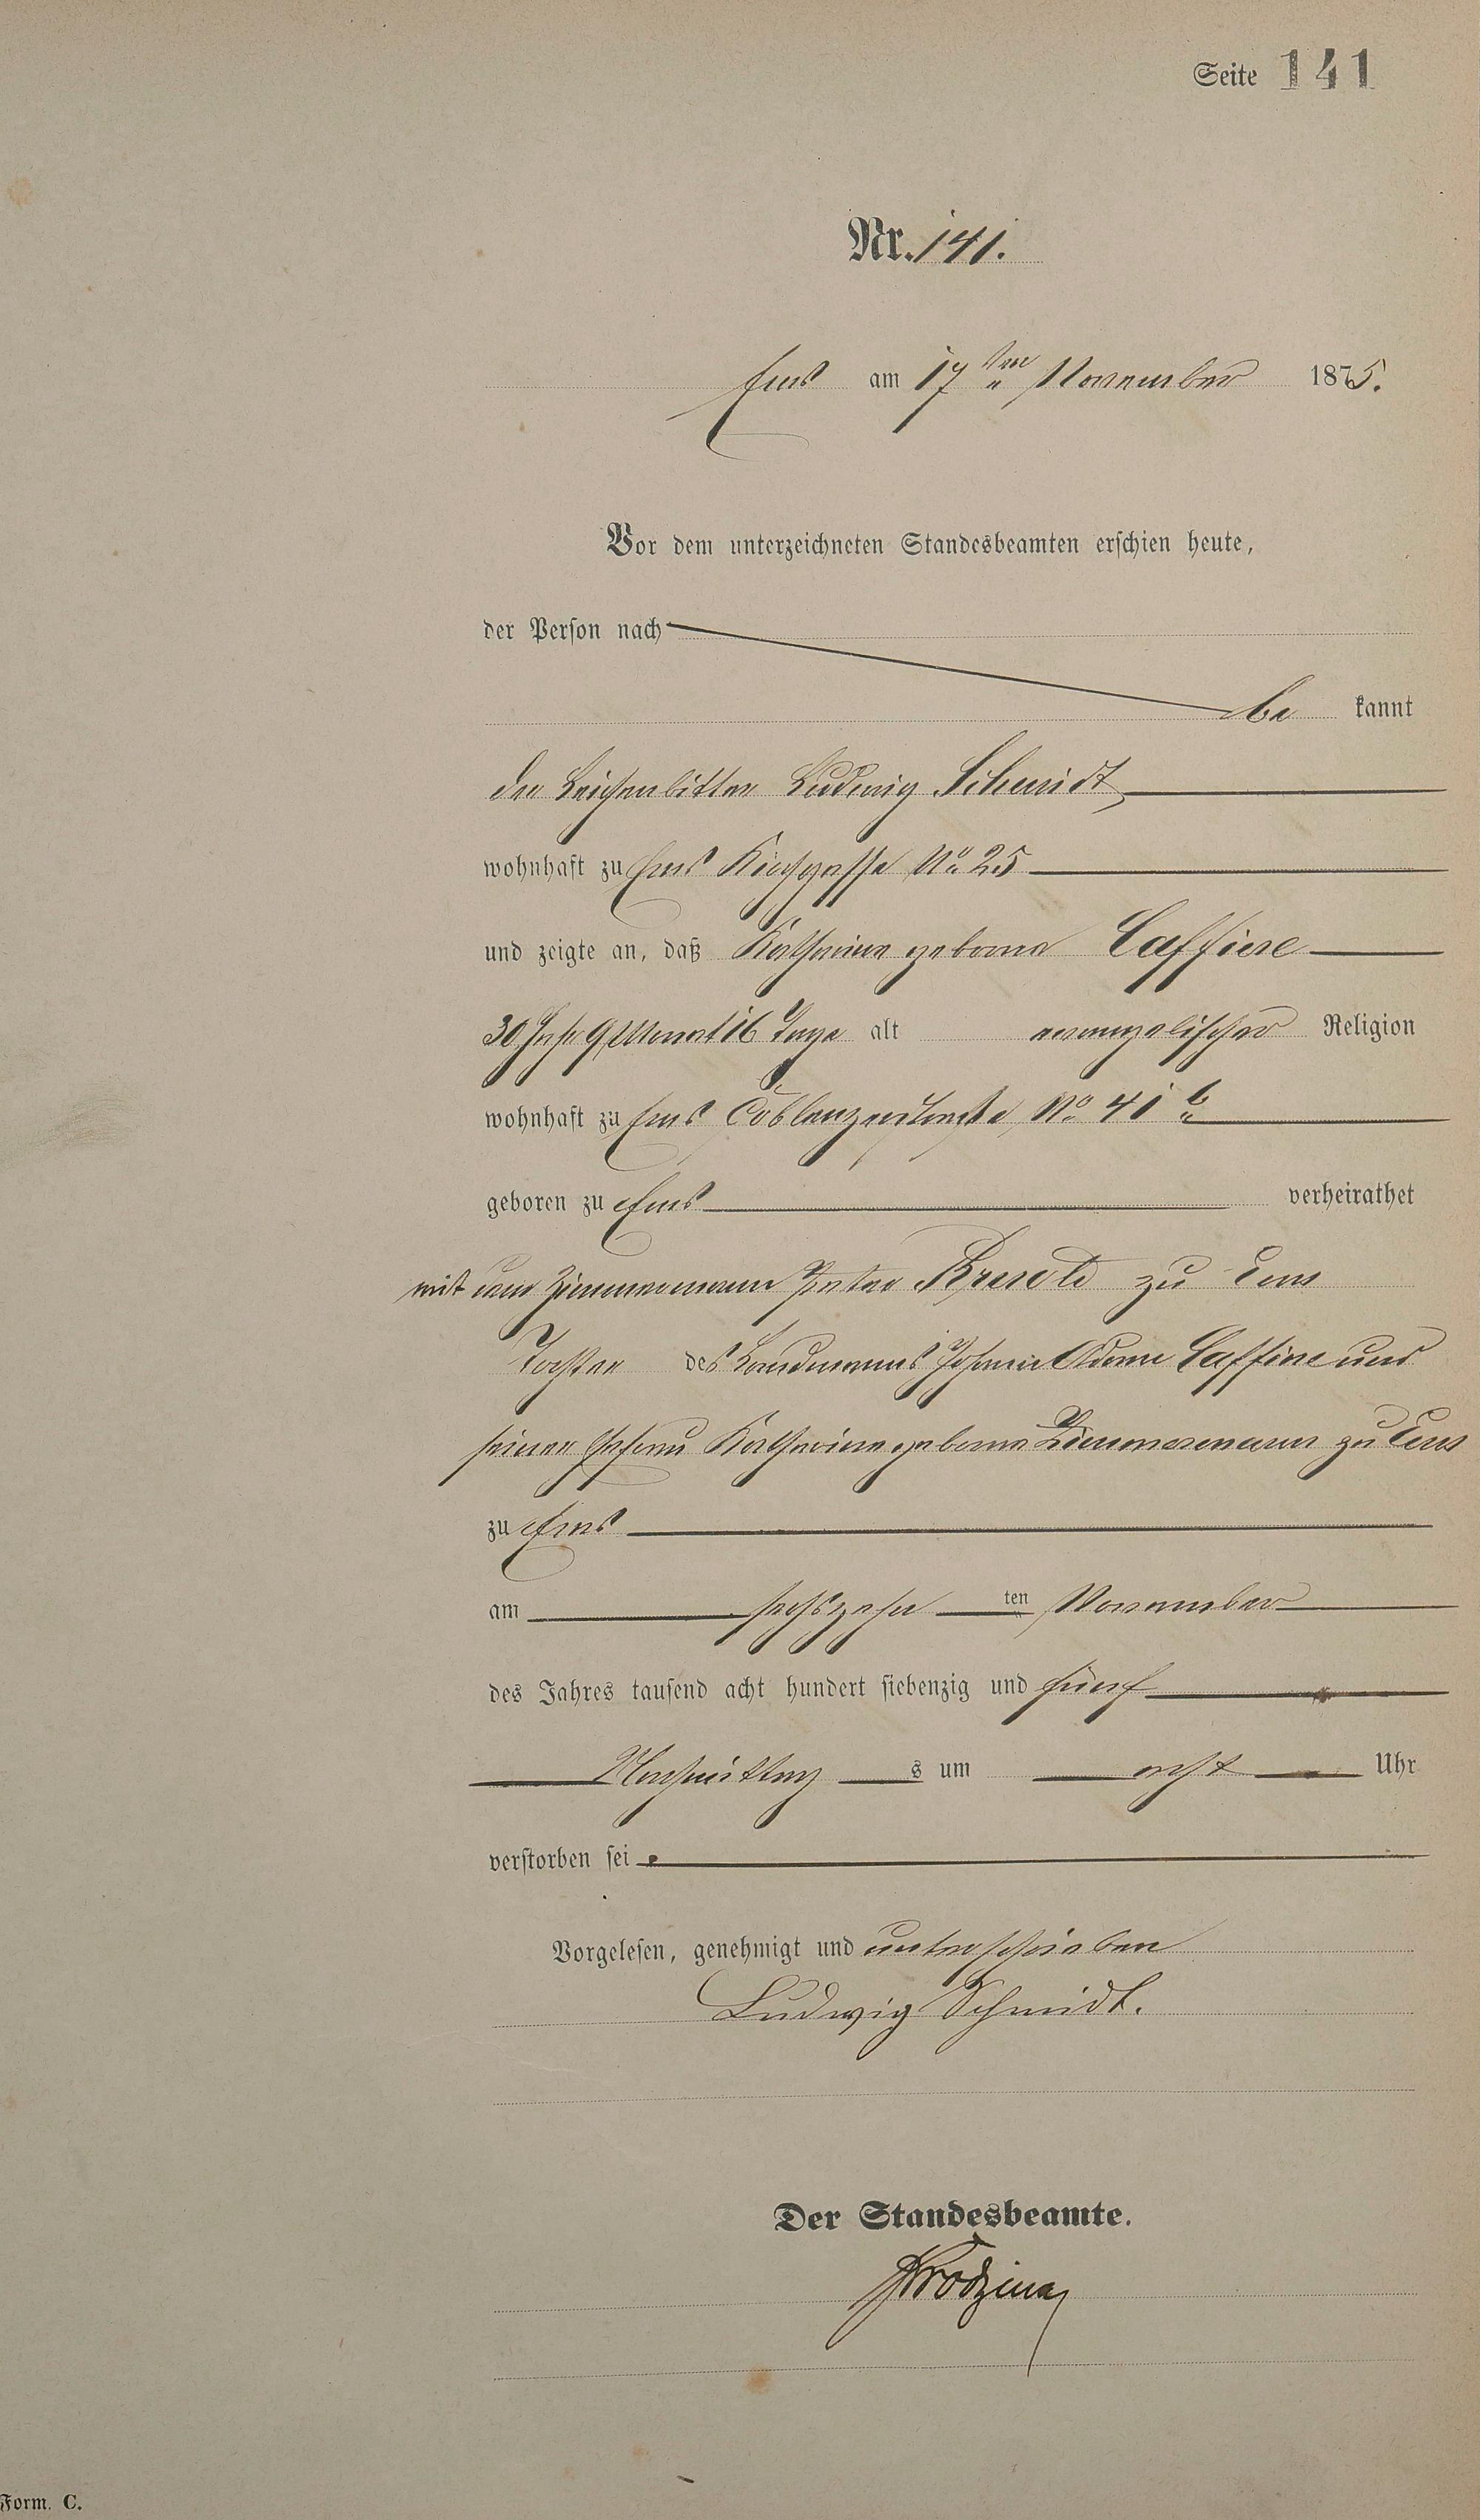 Seite 141
Nr. 141.
Ems am 17ten November 1875.
Vor dem unterzeichneten Standesbeamten erschien heute,
der Person nach
be kannt
der Leichenbitter Ludwig Schmidt,
wohnhaft zu Ems Kirchgasse No 25
und zeigte an, daß Katharine geborne Caffiere
30 Jahr 9 Monat 16 Tage alt evangelischer Religion
wohnhaft zu Ems Coblenzerstraße, No 41 b
geboren zu Ems verheirathet
mit dem Zimmermann Peter zu Ems
Tochter des Landmanns Johann Adam Caffiere und
seiner Ehefrau Katharine geborne Zimmermann zu Ems
zu Ems
am sechszehn ten November
des Jahres tausend acht hundert siebenzig und fünf
Nachmittag s um acht Uhr
verstorben sei.
Vorgelesen, genehmigt und unterschrieben
Ludwig Schmidt.
Der Standesbeamte.
Form. C.